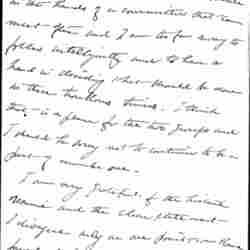 in the hands of a committee that can
meet often and I am too far away to
follow intelligently and to have a
hand in deciding what should be done
in these troublous times. I think
there is a place for the two groups and
I should be sorry not to continue to be a
of number one.
I am very grateful for the
and the clear statement
I disagree only on one point